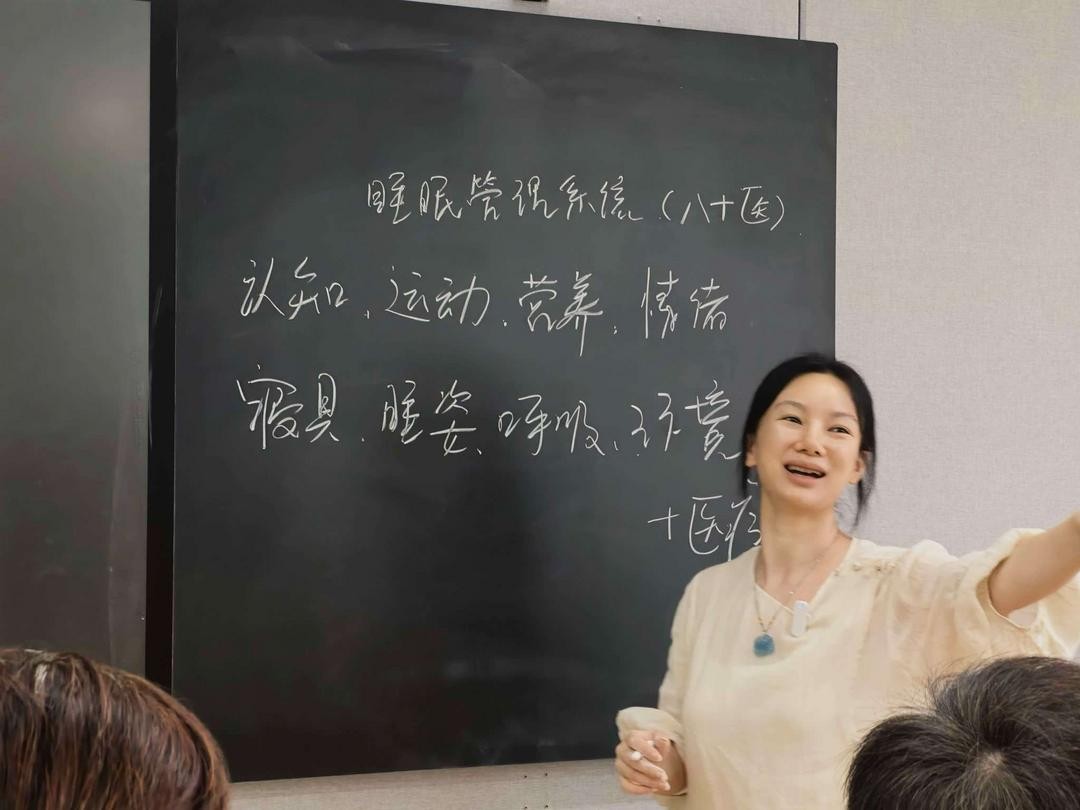 睡眠管理系统（八十医）
认知、运动、营养、情绪
寝具、睡姿、呼吸、环境
十医疗